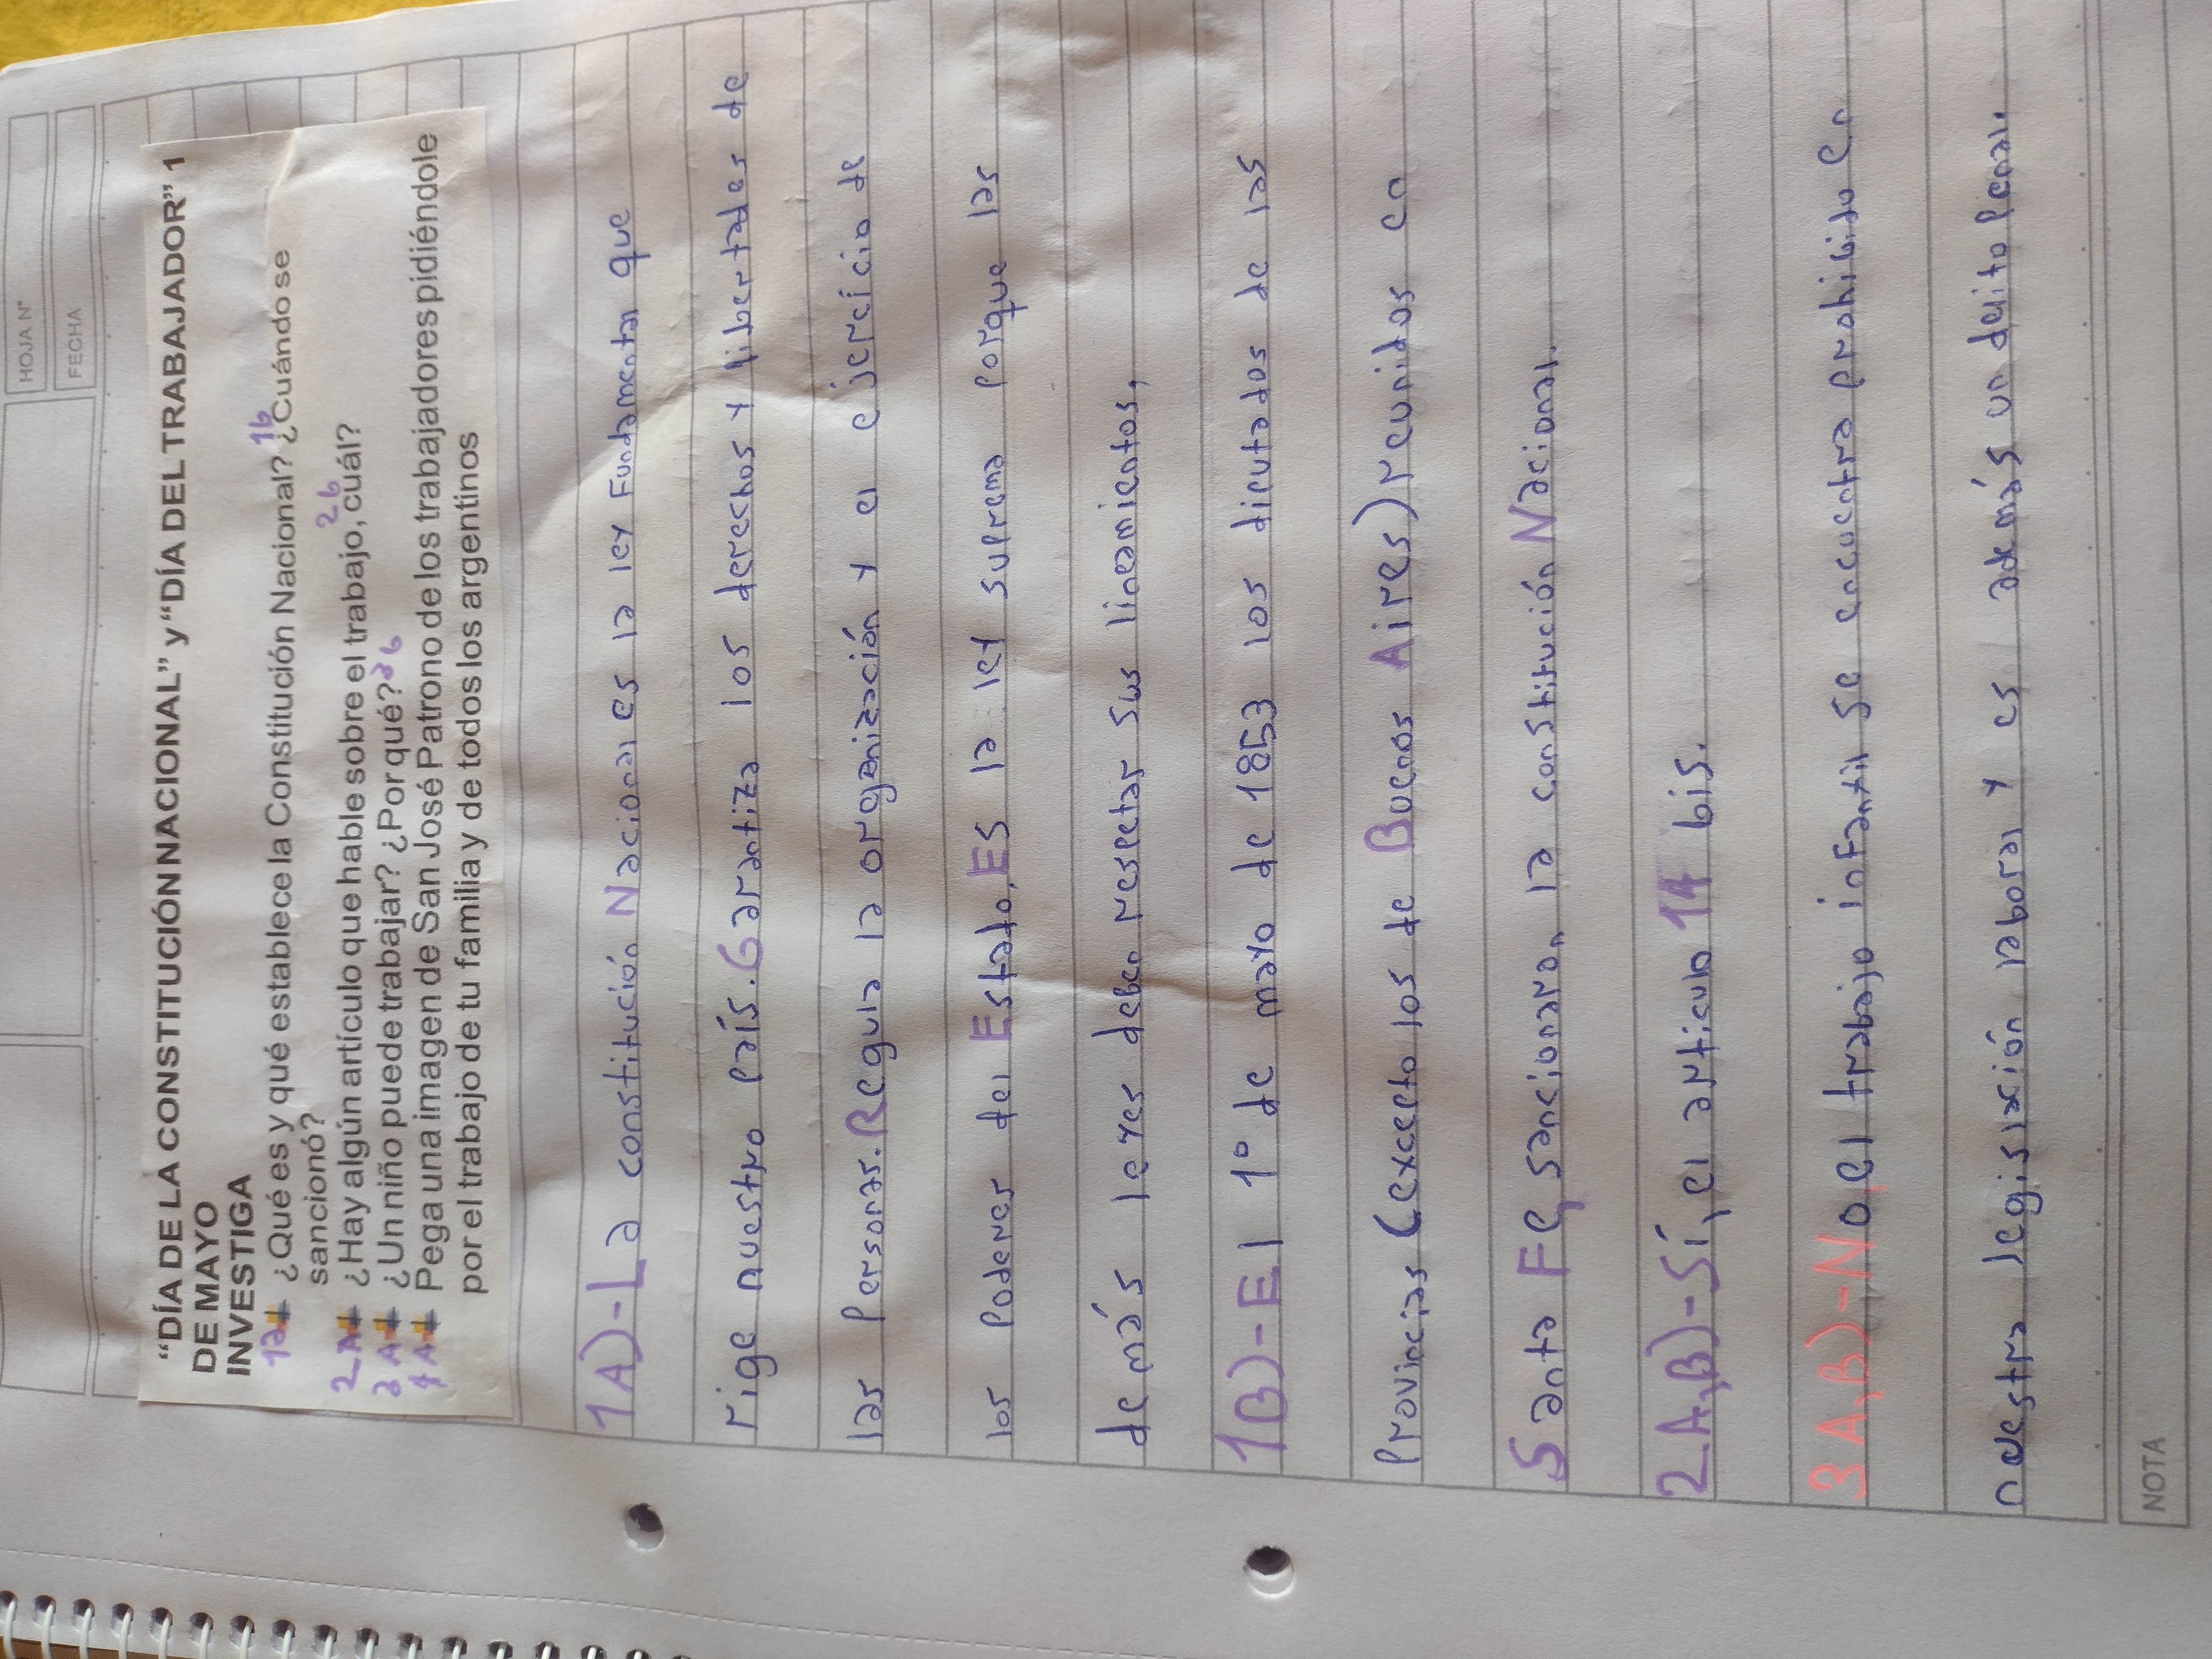 HOJA N°
FECHA
“DÍA DE LA CONSTITUCIÓN NACIONAL” y “DÍA DEL TRABAJADOR” 1
DE MAYO
INVESTIGA
1a ¿Qué es y qué establece la Constitución Nacional? 1b ¿Cuándo se
sancionó?
2A ¿Hay algún artículo que hable sobre el trabajo, 2b cuál?
3A ¿Un niño puede trabajar? ¿Por qué? 3b
4A Pega una imagen de San José Patrono de los trabajadores pidiéndole
por el trabajo de tu familia y de todos los argentinos
1A)-La constitución Nacional es la ley Fundamental que
rige nuestro país. Garantiza los derechos y libertades de
las Personas. Regula la organización y el ejercicio de
los Poderes del Estado. Es la ley suprema porque las
demás leyes deben respetar sus lineamientos.
1B)-El 1° de mayo de 1853 los diputados de las
Provincias (excepto los de Buenos Aires) reunidos en
Santa Fe, sancionaron la constitución Nacional.
2A,B)-Sí, el artículo 14 bis.
3A,B)-No, el trabajo infantil se encuentra prohibido en
nuestra legislación laboral y es además un delito penal.
NOTA